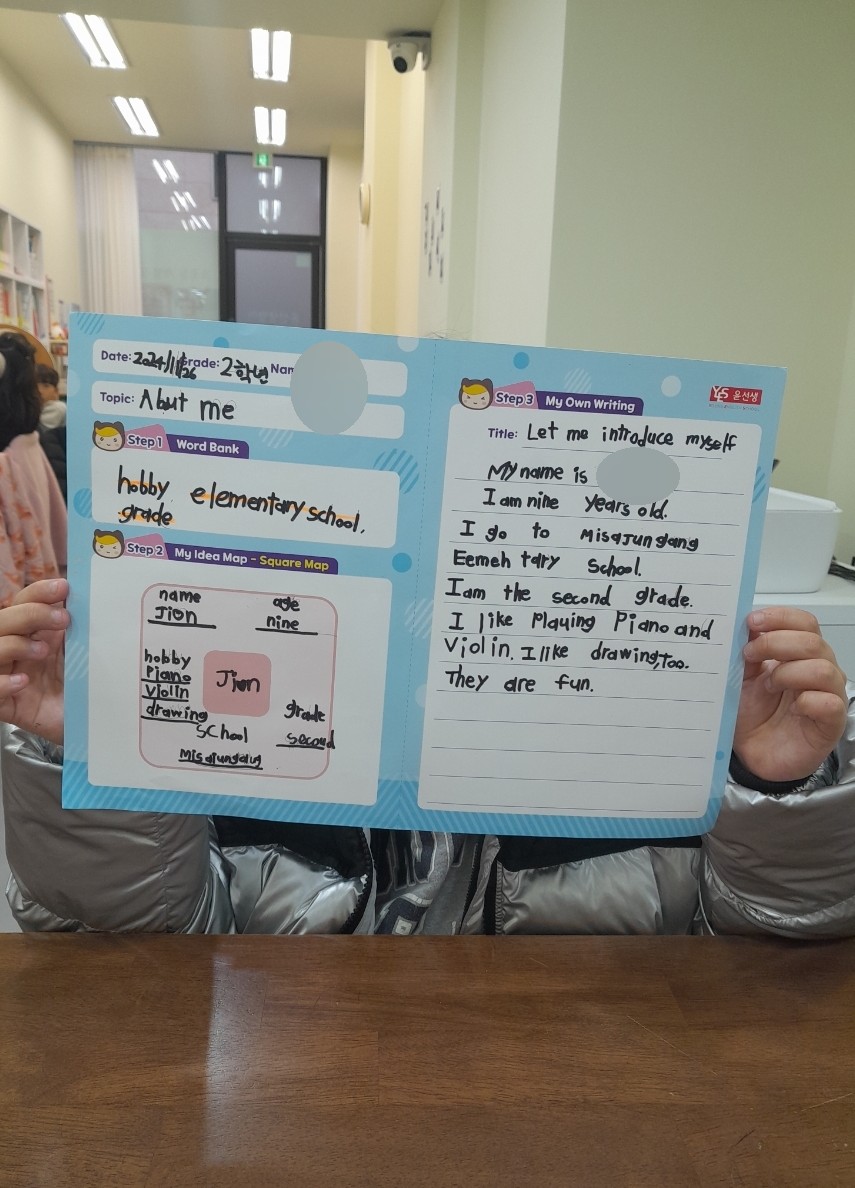 Date: 2024/11/26 Grade: 2학년 Nam
Topic: Abut me
Step 1 Word Bank
hobby elementary school.
grade
Step 2 My Idea Map - Square Map
name age
Jion nine
hobby
Piano
Violin
drawing
Jion
school
Misajungang
grade
second
Step 3 My Own Writing
YES 윤선생
Title: Let me introduce myself
My name is
I am nine years old.
I go to Misajungang
Eemeh tary school.
I am the second grade.
I like Playing Piano and
Violin. I like drawing, too.
They are fun.